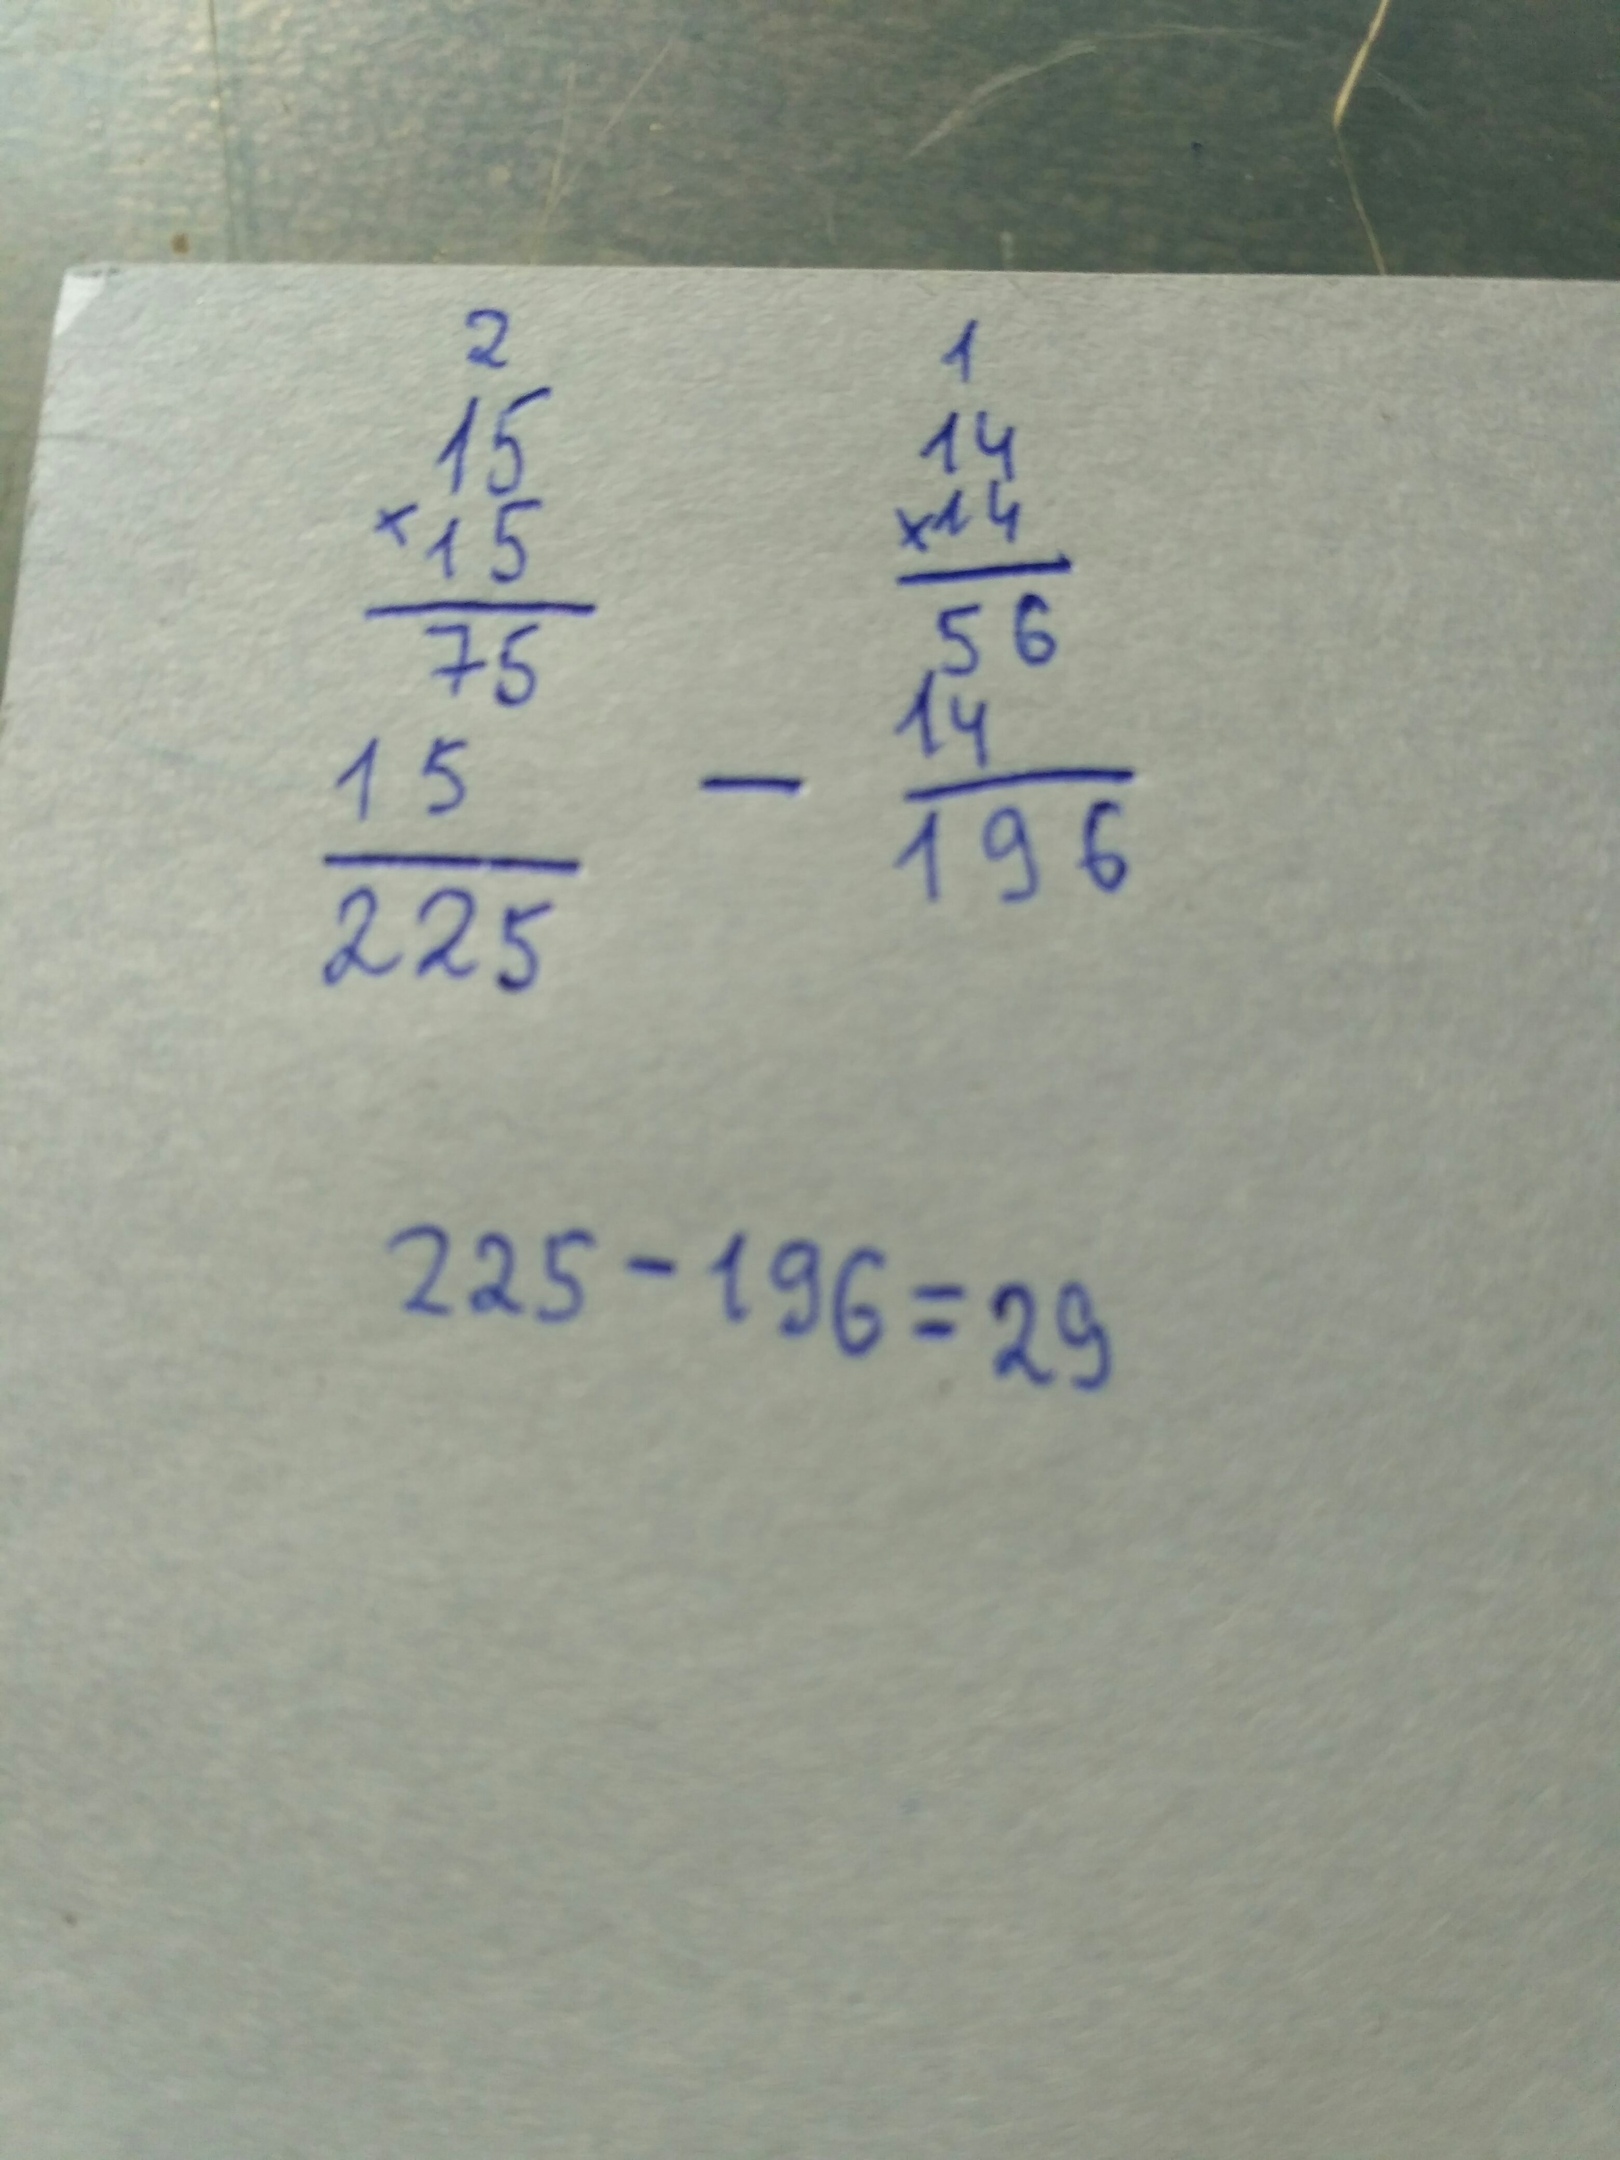 2
15
×15
75
15
225
−
1
14
×14
56
14
196
225-196=29